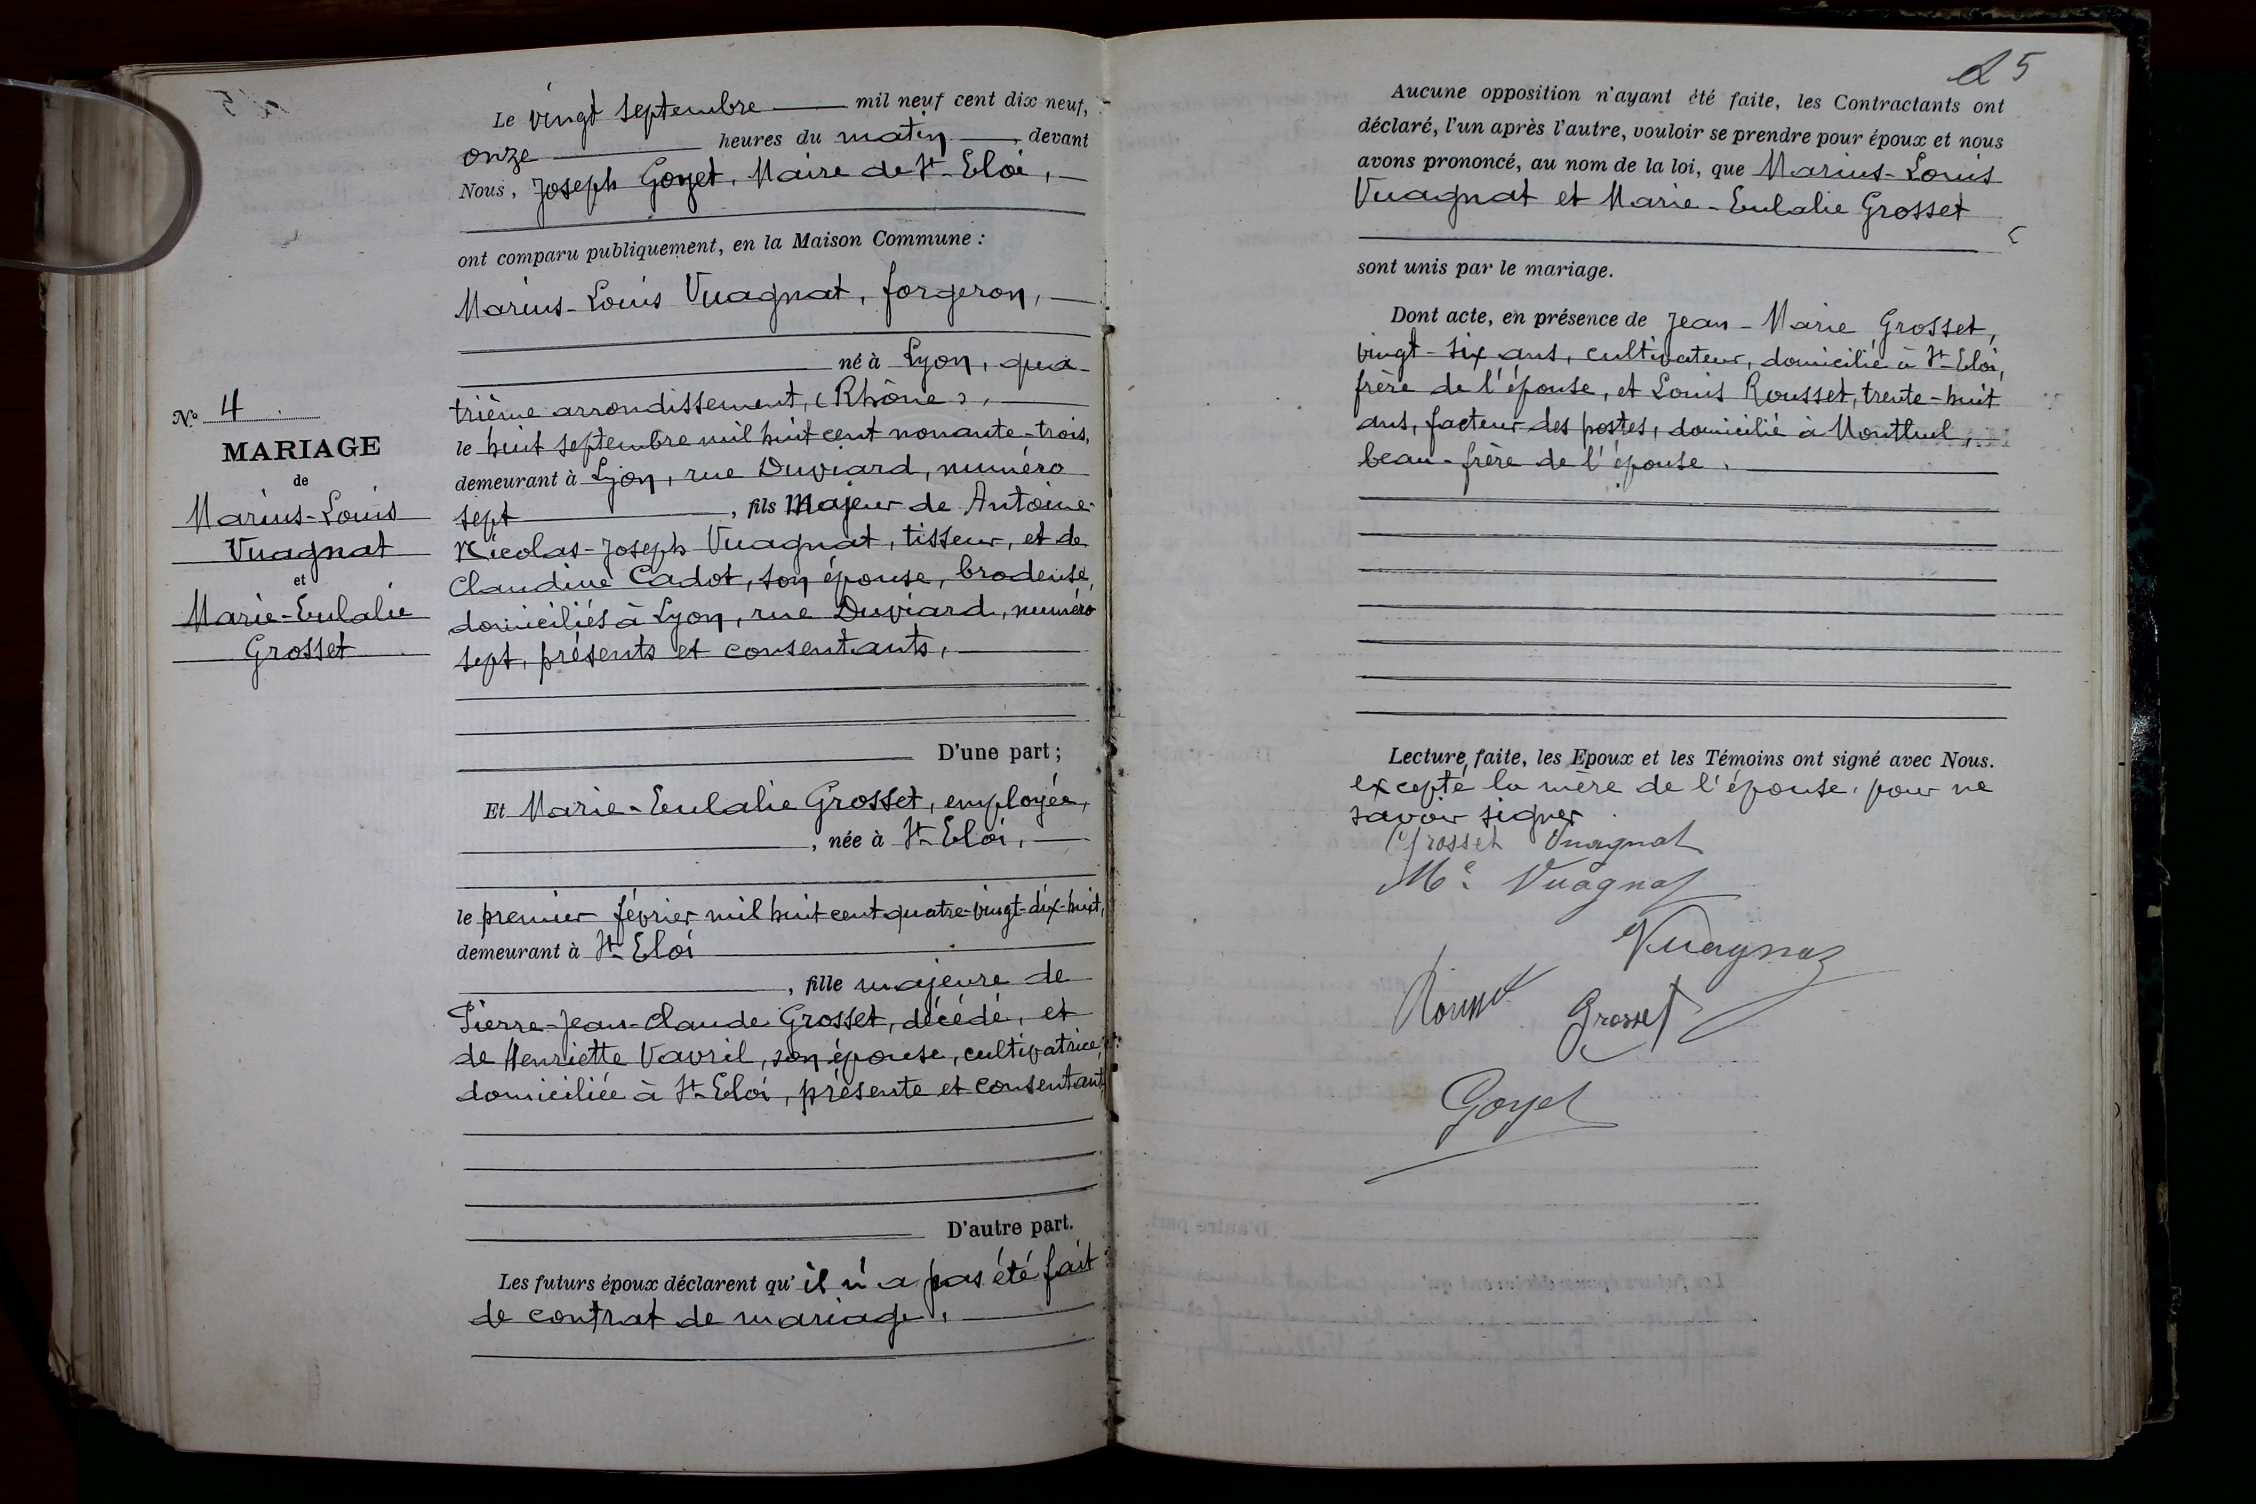 Le vingt septembre mil neuf cent dix neuf,
onze heures du matin, devant
Nous, Joseph Goyet, Maire de St Eloi,
ont comparu publiquement, en la Maison Commune :
Marius-Louis Vuagnat, forgeron,
né à Lyon, qua-
trième arrondissement, (Rhône),
le huit septembre mil huit cent nonante-trois,
demeurant à Lyon, rue Duviard, numéro
sept, fils Majeur de Antoine-
Nicolas-Joseph Vuagnat, tisseur, et de
Claudine Cadot, son épouse, brodeuse,
domiciliés à Lyon, rue Duviard, numéro
sept, présents et consentants,
D'une part ;
Et Marie-Eulalie Grosset, employée,
, née à St Eloi,
le premier février mil huit cent quatre-vingt-dix-huit,
demeurant à St Eloi
, fille majeure de
Pierre-Jean-Claude Grosset, décédé, et
de Henriette Vavril, son épouse, cultivatrice,
domiciliée à St Eloi, présente et consentant
D'autre part.
Les futurs époux déclarent qu'il n'a pas été fait
de contrat de mariage.
No 4
MARIAGE
de
Marius-Louis
Vuagnat
et
Marie-Eulalie
Grosset
25
Aucune opposition n'ayant été faite, les Contractants ont
déclaré, l'un après l'autre, vouloir se prendre pour époux et nous
avons prononcé, au nom de la loi, que Marius-Louis
Vuagnat et Marie-Eulalie Grosset
sont unis par le mariage.
Dont acte, en présence de Jean-Marie Grosset,
vingt-six ans, cultivateur, domicilié à St Eloi,
frère de l'épouse, et Louis Rousset, trente-huit
ans, facteur des postes, domicilié à Montluel,
beau-frère de l'épouse.
Lecture faite, les Epoux et les Témoins ont signé avec Nous.
excepté la mère de l'épouse, pour ne
savoir signer
Grosset Vuagnat
Me Vuagnat
Vuagnat
Rousset Grosset
Goyet